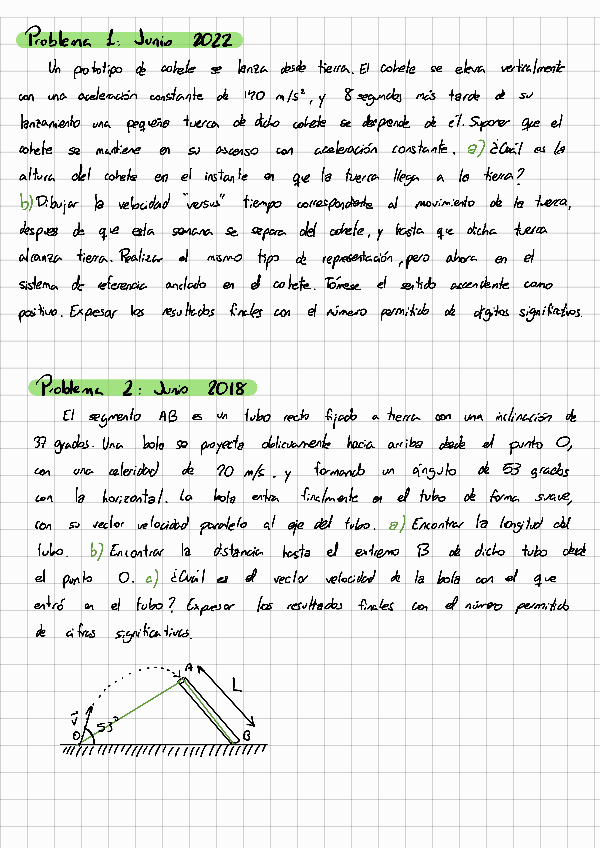 Problema 1: Junio 2022
Un prototipo de cohete se lanza desde tierra. El cohete se eleva verticalmente
con una aceleración constante de 140 m/s², y 8 segundos más tarde de su
lanzamiento una pequeña tuerca de dicho cohete se desprende de él. Suponer que el
cohete se mantiene en su ascenso con aceleración constante. a) ¿Cuál es la
altura del cohete en el instante en que la tuerca llega a la tierra?
b) Dibujar la velocidad "versus" tiempo correspondiente al movimiento de la tuerca,
después de que esta se separa del cohete, y hasta que dicha tuerca
alcanza tierra. Realizar el mismo tipo de representación, pero ahora en el
sistema de referencia anclado en el cohete. Tómese el sentido ascendente como
positivo. Expesar los resultados finales con el número permitido de dígitos significativos.
Problema 2: Junio 2018
El segmento AB es un tubo recto fijado a tierra con una inclinación de
37 grados. Una bola se proyecta oblicuamente hacia arriba desde el punto O,
con una celeridad de 20 m/s. y formando un ángulo de 53 grados
con la horizontal. La bola entra finalmente en el tubo de forma suave,
con su vector velocidad paralelo al eje del tubo. a) Encontrar la longitud del
tubo. b) Encontrar la distancia hasta el extremo B de dicho tubo desde
el punto O. c) ¿Cuál es el vector velocidad de la bola con el que
entró en el tubo? Expesar los resultados finales con el número permitido
de cifras significativas.
A
L
V
53°
O
B